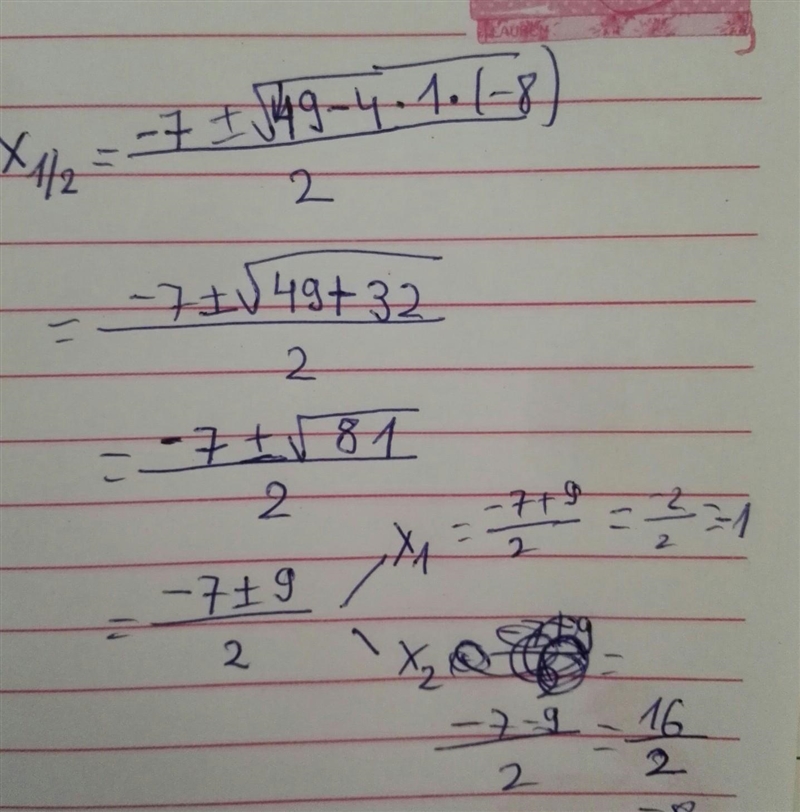 LAUREN
X₁/₂ = (-7 ± √(49-4·1·(-8)))/2
= (-7 ± √(49+32))/2
= (-7 ± √81)/2
= (-7 ± 9)/2
X₁ = (-7+9)/2 = -2/2 = -1
X₂ =
(-7-9)/2 = 16/2